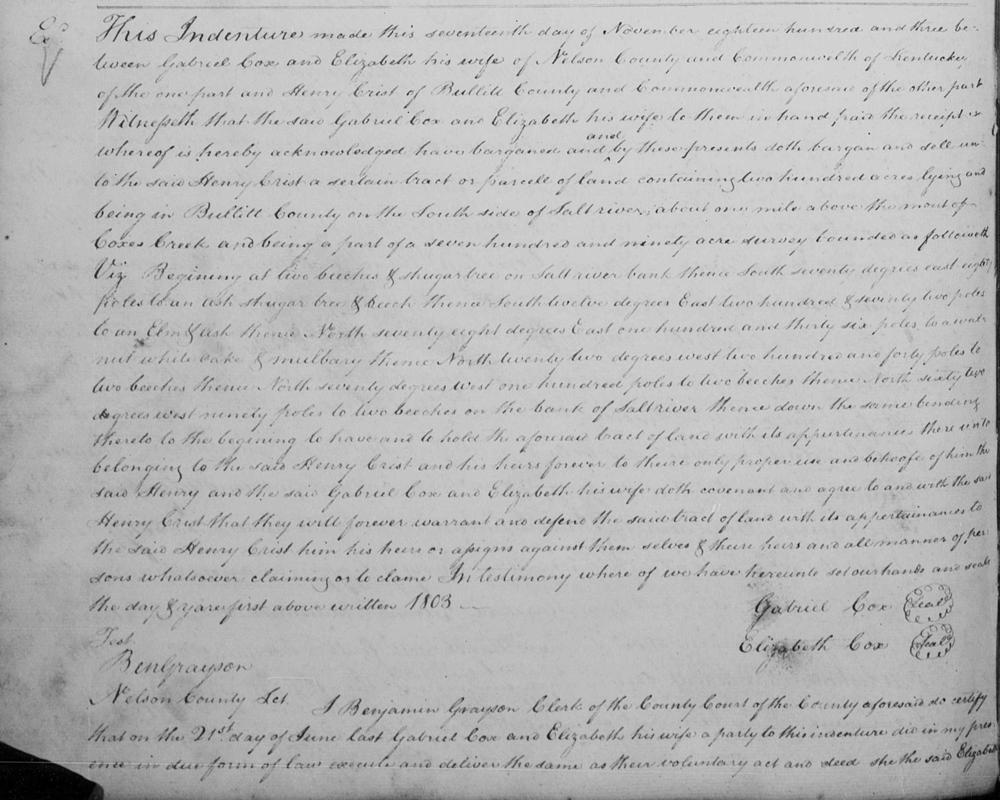 Ex
This Indenture made this seventeenth day of November eighteen hundred and three be-
tween Gabriel Cox and Elizabeth his wife of Nelson County and Commonwelth of Kentucky
of the one part and Henry Crist of Bullitt County and Commonwealth aforesaid of the other part
Witnesseth that the said Gabriel Cox and Elizabeth his wife to them in hand paid the receipt
whereof is hereby acknowledged have barganed and and by these presents doth bargan and sell un-
to the said Henry Crist a sertain tract or parcell of land containing two hundred acres lying and
being in Bullitt County on the South side of Salt river about one mile above the mout of
Coxes Creek and being a part of a seven hundred and ninety acre survey bounded as followeth
Viz Begining at two beeches & shugartree on Salt river bank thence South seventy degrees east eighty
poles to an ash shugar tree & beech thence South twelve degrees East two hundred & seventy two poles
to an Elm & ash thence North seventy eight degrees East one hundred and thirty six poles to a wal
nut white oake & mulbary thence North twenty two degrees west two hundred and forty poles to
two beeches thence North seventy degrees west one hundred poles to two beeches thence North sixty two
degrees west ninety poles to two beeches on the bank of Salt river thence down the same bending
thereto to the begining to have and to hold the aforesaid tract of land with its appurtinances there unto
belonging to the said Henry Crist and his heirs forever to theire only proper use and behoofe of him the
said Henry and the said Gabriel Cox and Elizabeth his wife doth covenant and agree to and with the said
Henry Crist that they will forever warrant and defend the said tract of land with its appertainances to
the said Henry Crist him his heirs or assigns against them selves & theire heirs and all manner of per
sons whatsoever claiming or to clame In testimony where of we have hereunto set our hands and seals
the day & yare first above written 1803
Gabriel Cox Seal
Elizabeth Cox Seal
Test
Ben Grayson
Nelson County Sct
I Benjamin Grayson Clerk of the County Court of the County aforesaid do certify
that on the 21st day of June last Gabriel Cox and Elizabeth his wife a party to this indenture did in my pres
ence in due form of law execute and deliver the same as their voluntary act and deed she the said Elizabeth